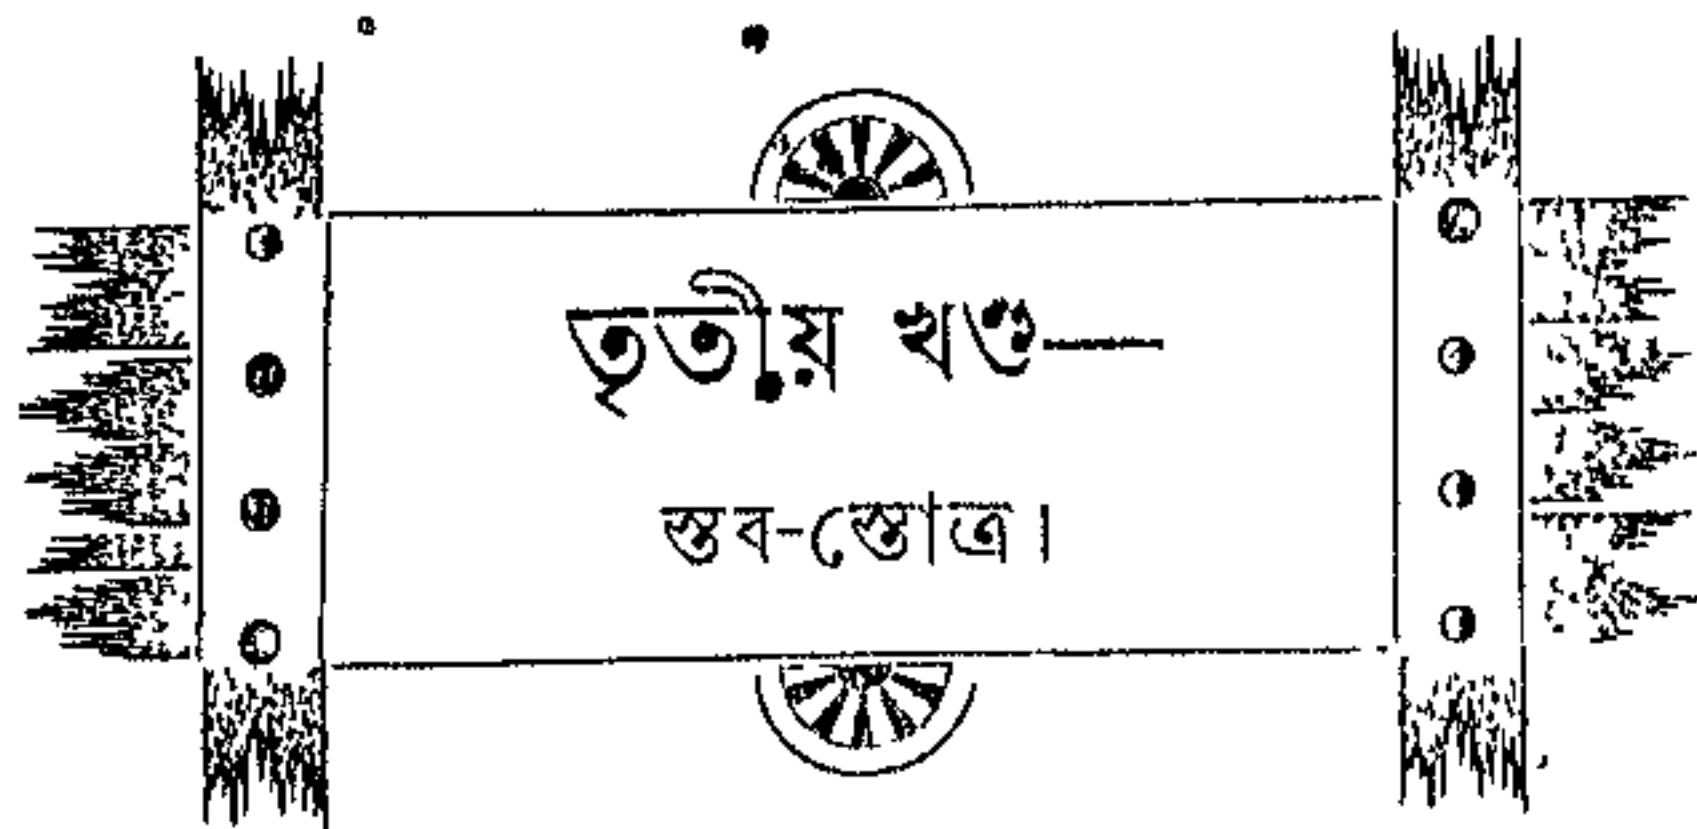 তৃতীয় খণ্ড—
স্তব-স্তোত্র।